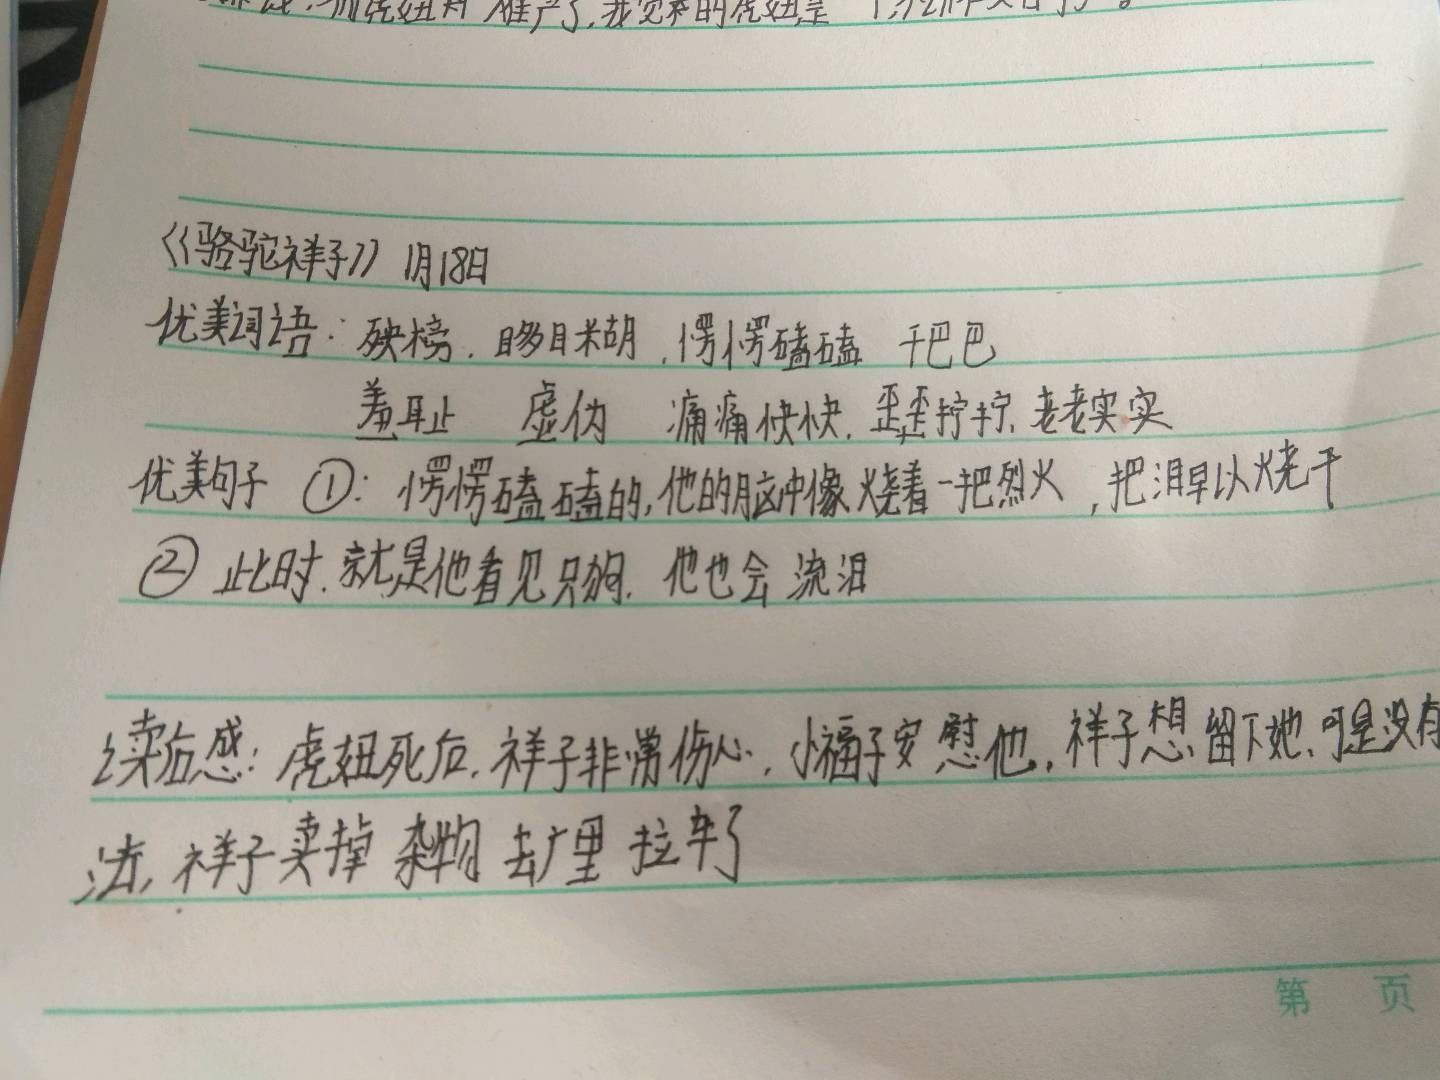 而虎妞难产了,我觉来的虎妞是
《骆驼祥子》 1月18日
优美词语: 殃榜. 眵目糊, 愣愣磕磕 干巴巴
羞耻 虚伪 痛痛快快. 歪歪拧拧. 老老实实
优美句子 ①: 愣愣磕磕的,他的脑中像烧着一把烈火,把泪早以烧干
② 此时. 就是他看见只狗. 他也会流泪
读后感: 虎妞死后. 祥子非常伤心. 小福子安慰他. 祥子想留下她. 可是没有
法, 祥子卖掉杂物去厂里拉车了
第 页